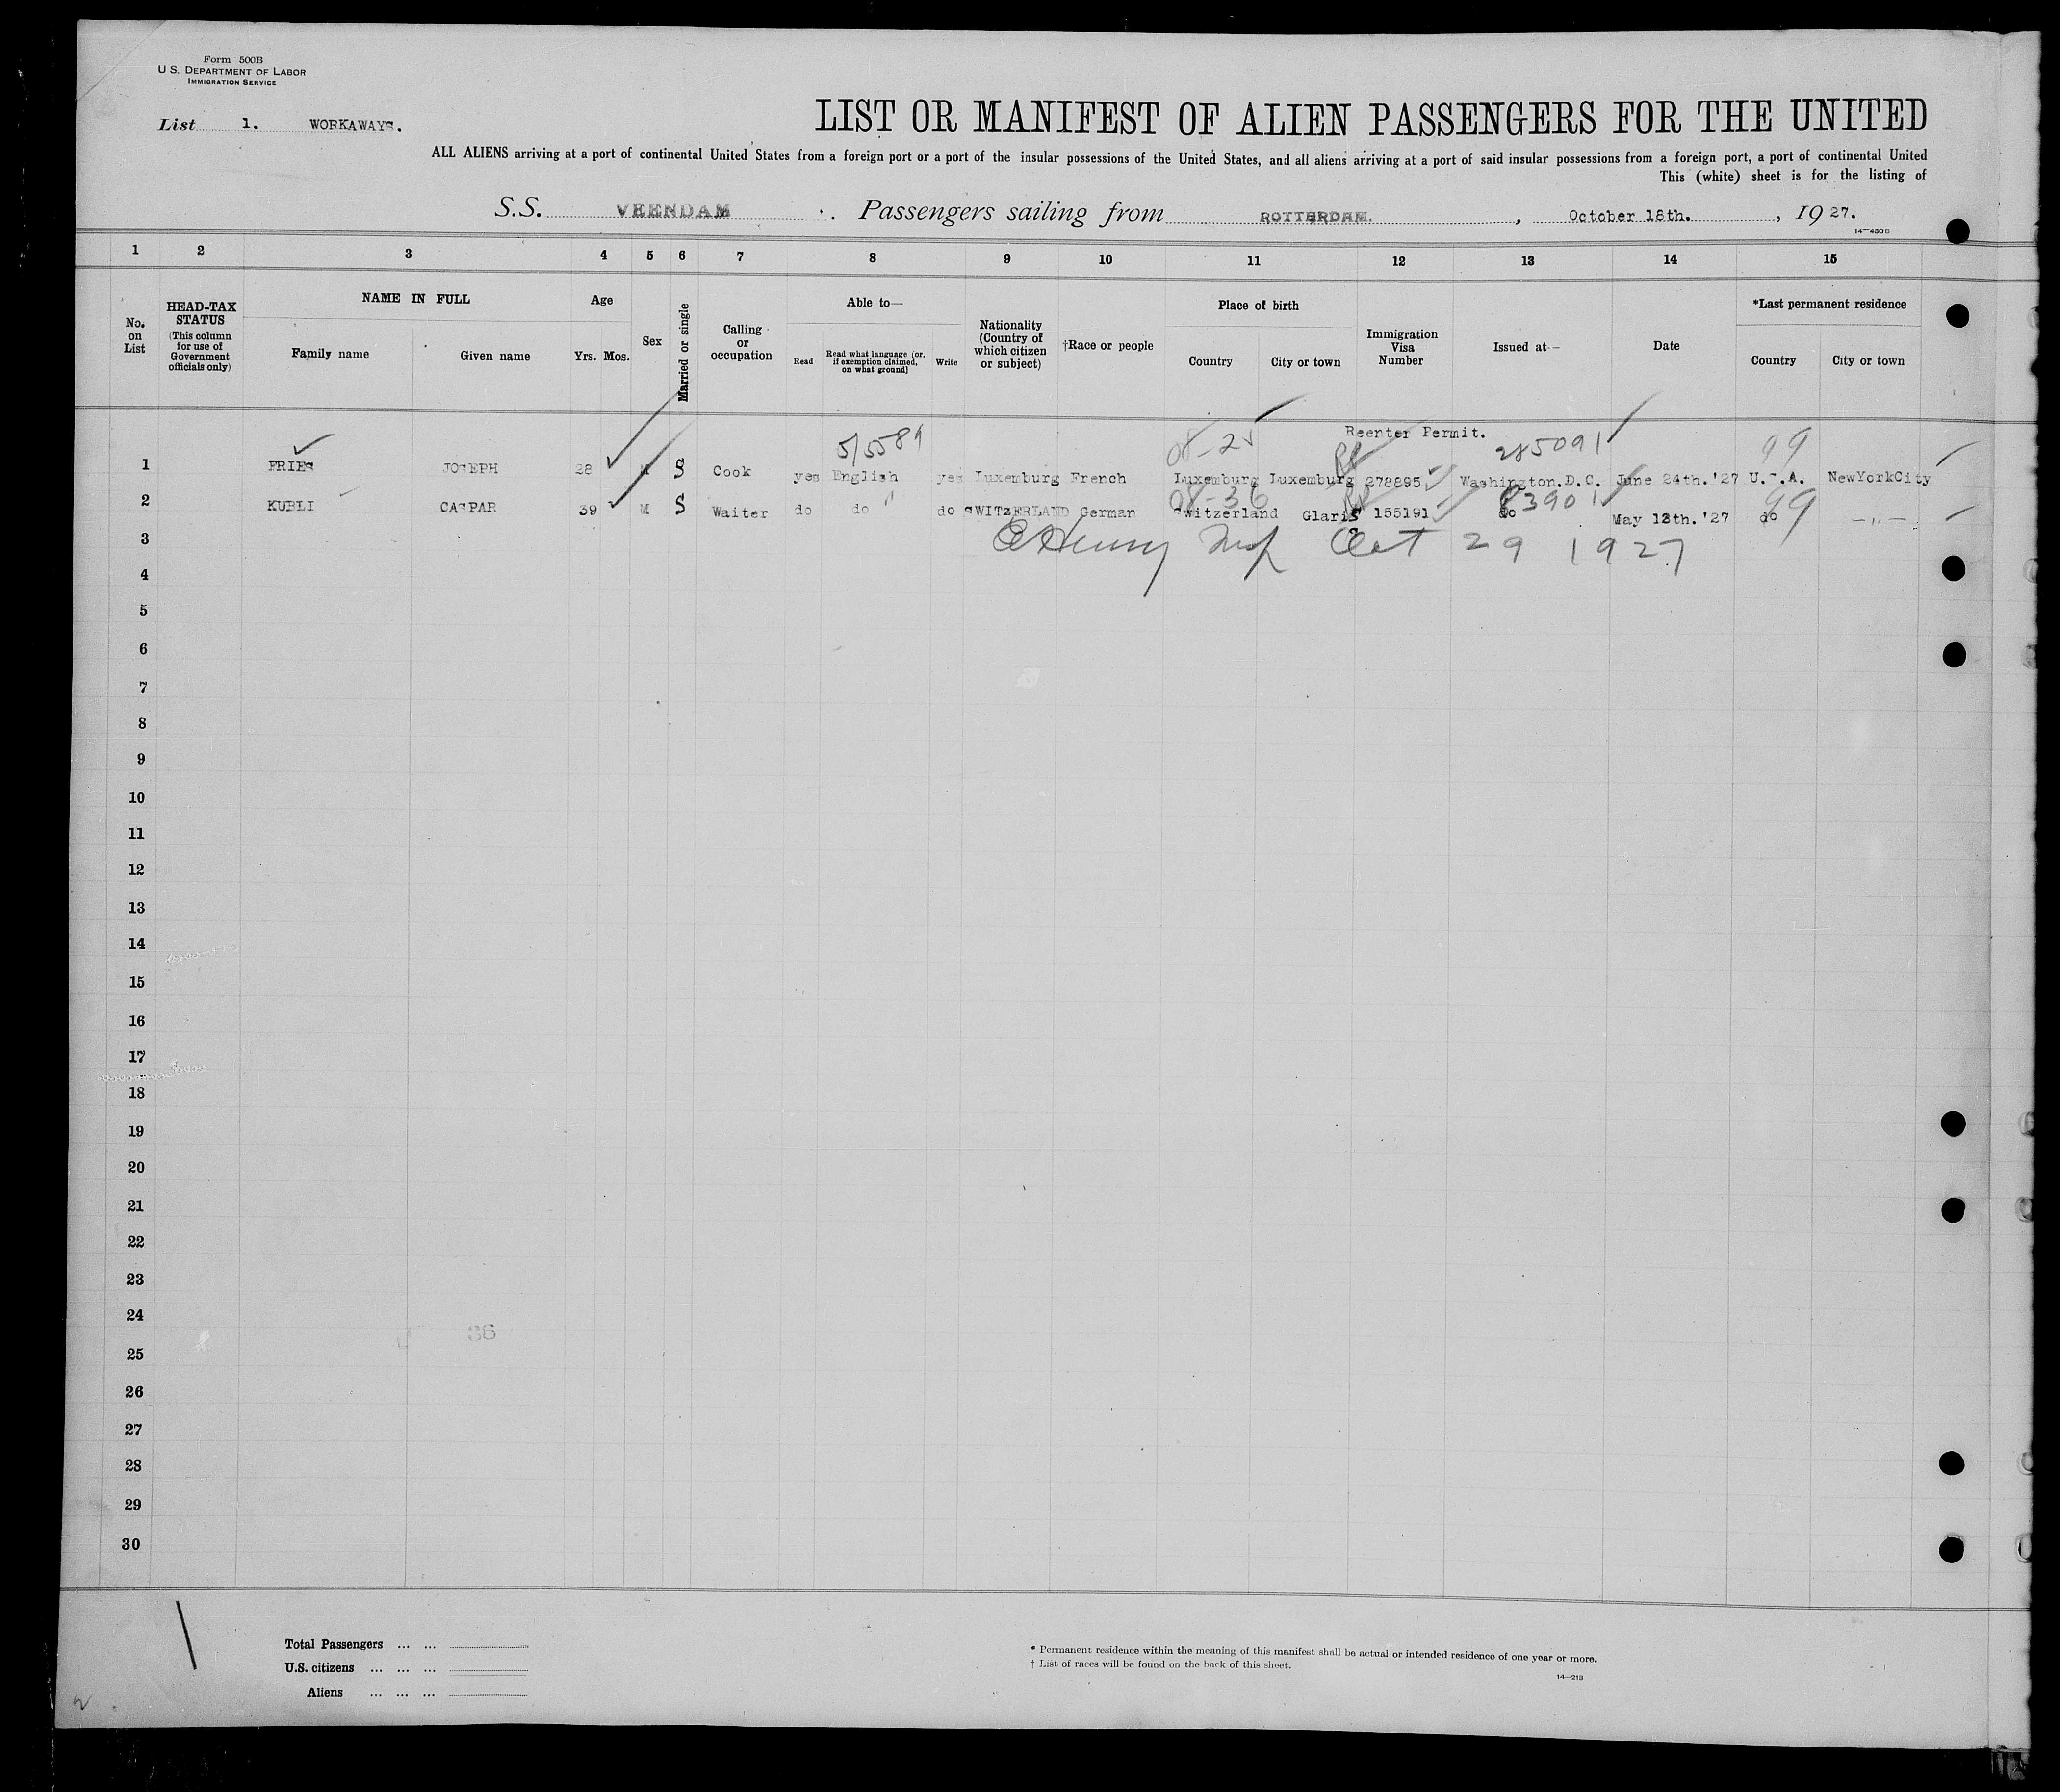 Form 500B
U S. DEPARTMENT OF LABOR
IMMIGRATION SERVICE
List 1. WORKAWAYS.
LIST OR MANIFEST OF ALIEN PASSENGERS FOR THE UNITED
ALL ALIENS arriving at a port of continental United States from a foreign port or a port of the insular possessions of the United States, and all aliens arriving at a port of said insular possessions from a foreign port, a port of continental United
This (white) sheet is for the listing of
S.S. VEENDAM. Passengers sailing from ROTTERDAM. , October 18th. , 19 27.
14—430 B
1 2 3 4 5 6 7 8 9 10 11 12 13 14 15
No. on List
HEAD-TAX STATUS (This column for use of Government officials only)
NAME IN FULL
Family name Given name
Age
Yrs. Mos.
Sex
Married or single
Calling or occupation
Able to—
Read Read what language (or, if exemption claimed, on what ground) Write
Nationality (Country of which citizen or subject)
†Race or people
Place of birth
Country City or town
Immigration Visa Number
Issued at—
Date
*Last permanent residence
Country City or town
5/5589 Reenter Permit. 285091 99
1 FRIES JOSEPH 28 M S Cook yes English yes Luxemburg French Luxemburg Luxemburg 278895 Washington.D.C. June 24th.'27 U.S.A. NewYorkCity
83901 99
2 KUBLI CASPAR 39 M S Waiter do do " do SWITZERLAND German Switzerland Glaris 155191 do May 12th.'27 do —"—
Oct 29 1927
3
4
5
6
7
8
9
10
11
12
13
14
15
16
17
18
19
20
21
22
23
24
36
25
26
27
28
29
30
Total Passengers ... ...
U.S. citizens ... ... ...
Aliens ... ... ...
* Permanent residence within the meaning of this manifest shall be actual or intended residence of one year or more.
† List of races will be found on the back of this sheet.
14—213